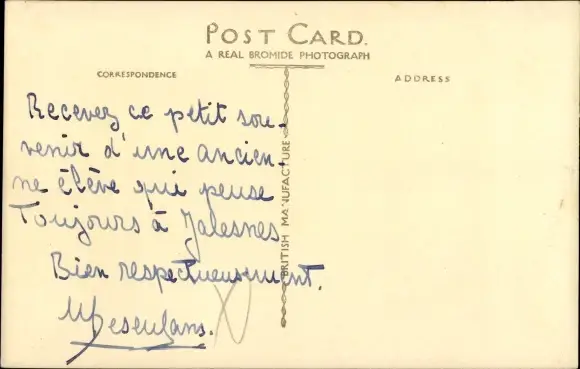 POST CARD.
A REAL BROMIDE PHOTOGRAPH
CORRESPONDENCE
ADDRESS
Recevez ce petit sou-
venir d'une ancien-
ne élève qui pense
Toujours à Jalesnes
Bien respectueusement.
BRITISH MANUFACTURE